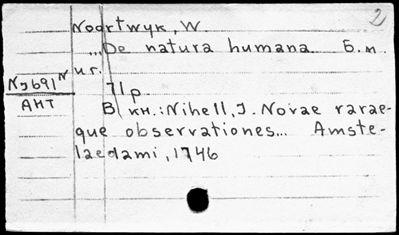 2
Noortwyk, W.
...De natura humana. Б.м.
и г.
71 p
№ 691
АНТ
В кн.: Nihell, J. Novae rarae-
que observationes... Amste-
laedami, 1746